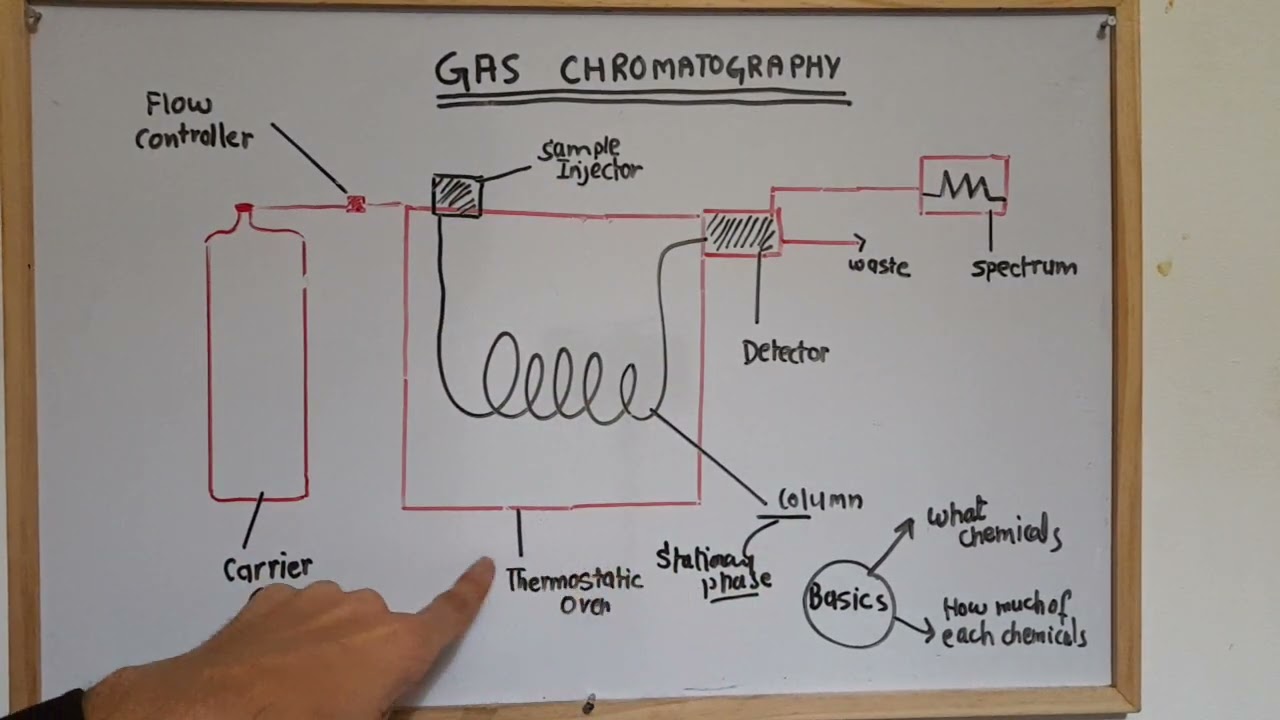 GAS CHROMATOGRAPHY
Flow
Controller
Sample
Injector
waste
Spectrum
Detector
Column
Stationary
phase
Carrier
Thermostatic
Oven
Basics
What
chemicals
How much of
each chemicals